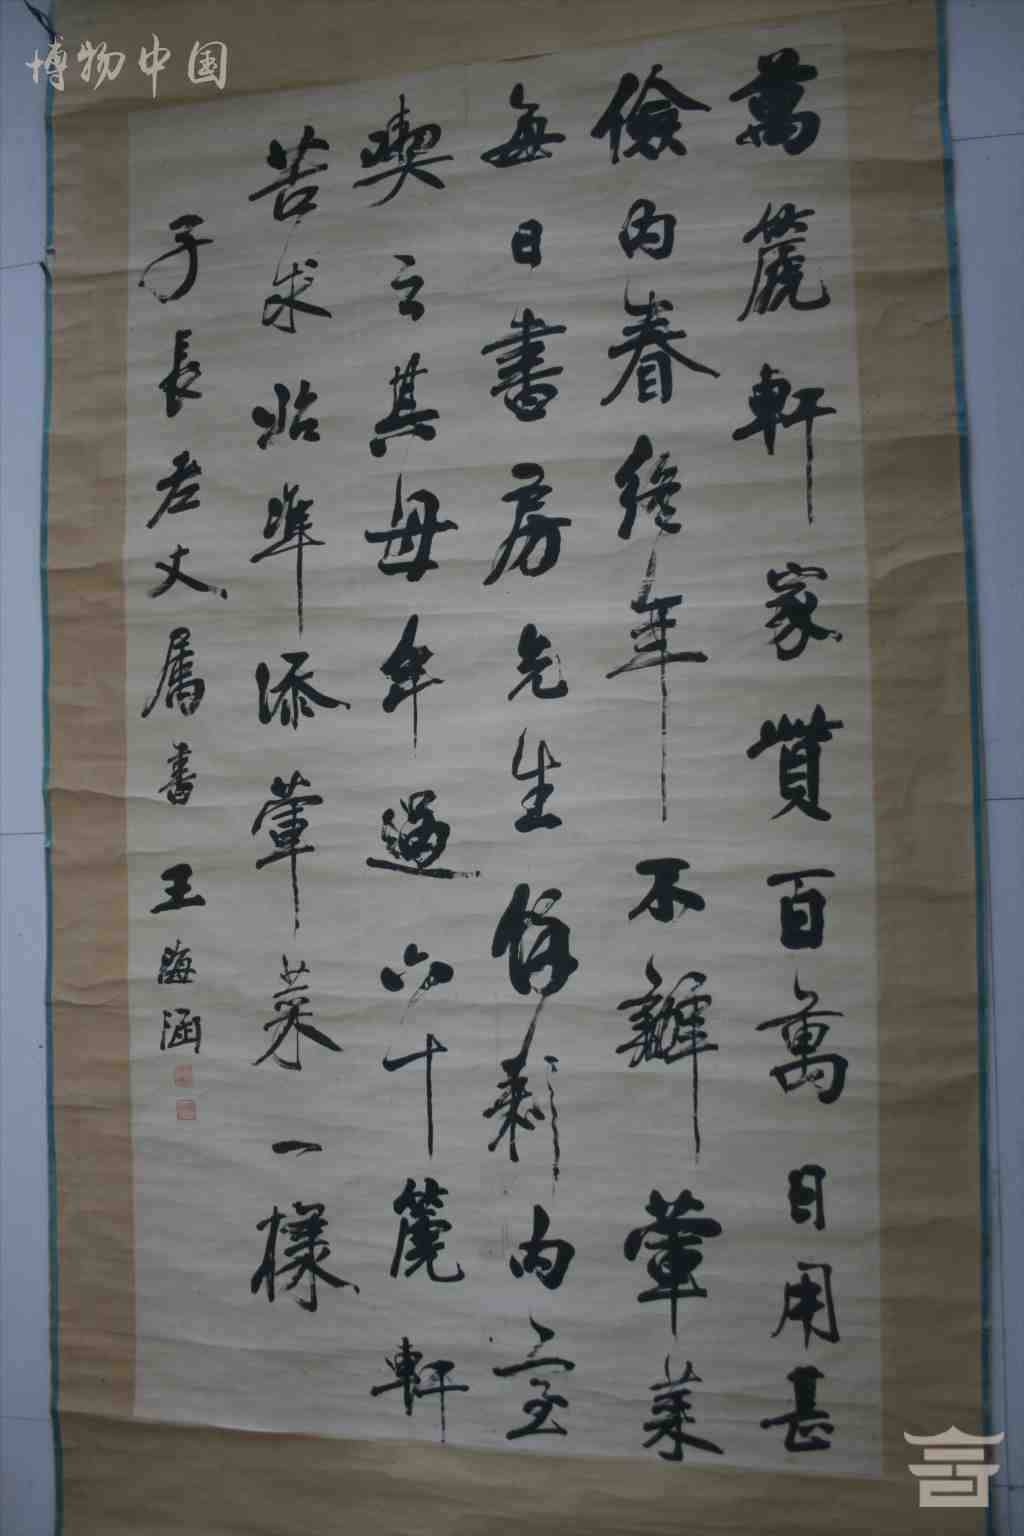 博物中国
萬篪軒家貲百萬日用甚
儉內眷終年不辦葷菜
每日書房先生俢剩內室
喫之其母年過六十篪軒
苦求始準添葷菜一樣
子長老丈屬書 王海涵